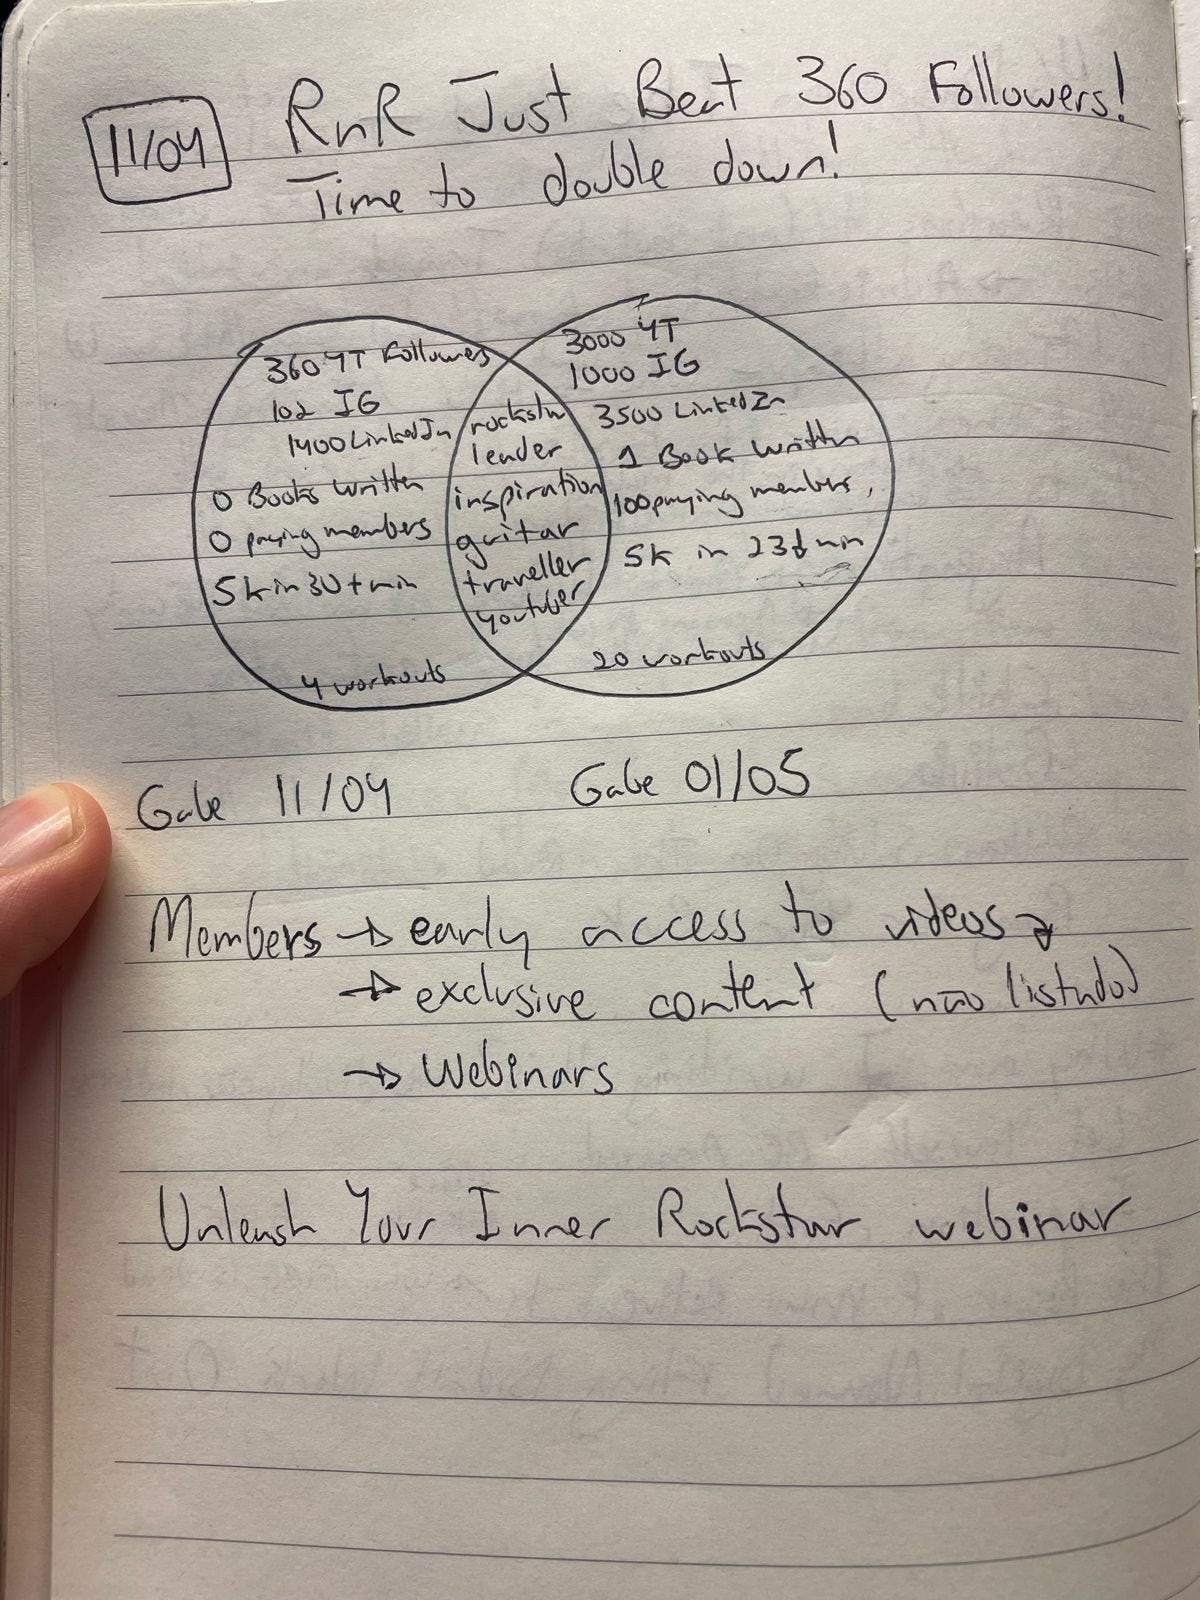 11/04
RnR Just Beat 360 Followers!
Time to double down!
360 YT Followers
102 IG
1400 LinkedIn
0 Books Written
0 paying members
5k in 30+ min
4 workouts
rockstar
leader
inspiration
guitar
traveller
youtuber
3000 YT
1000 IG
3500 LinkedIn
1 Book Written
100 paying members,
5k in 23 min
20 workouts
Gabe 11/04
Gabe 01/05
Members → early access to videos
→ exclusive content (não listado)
→ Webinars
Unleash Your Inner Rockstar webinar